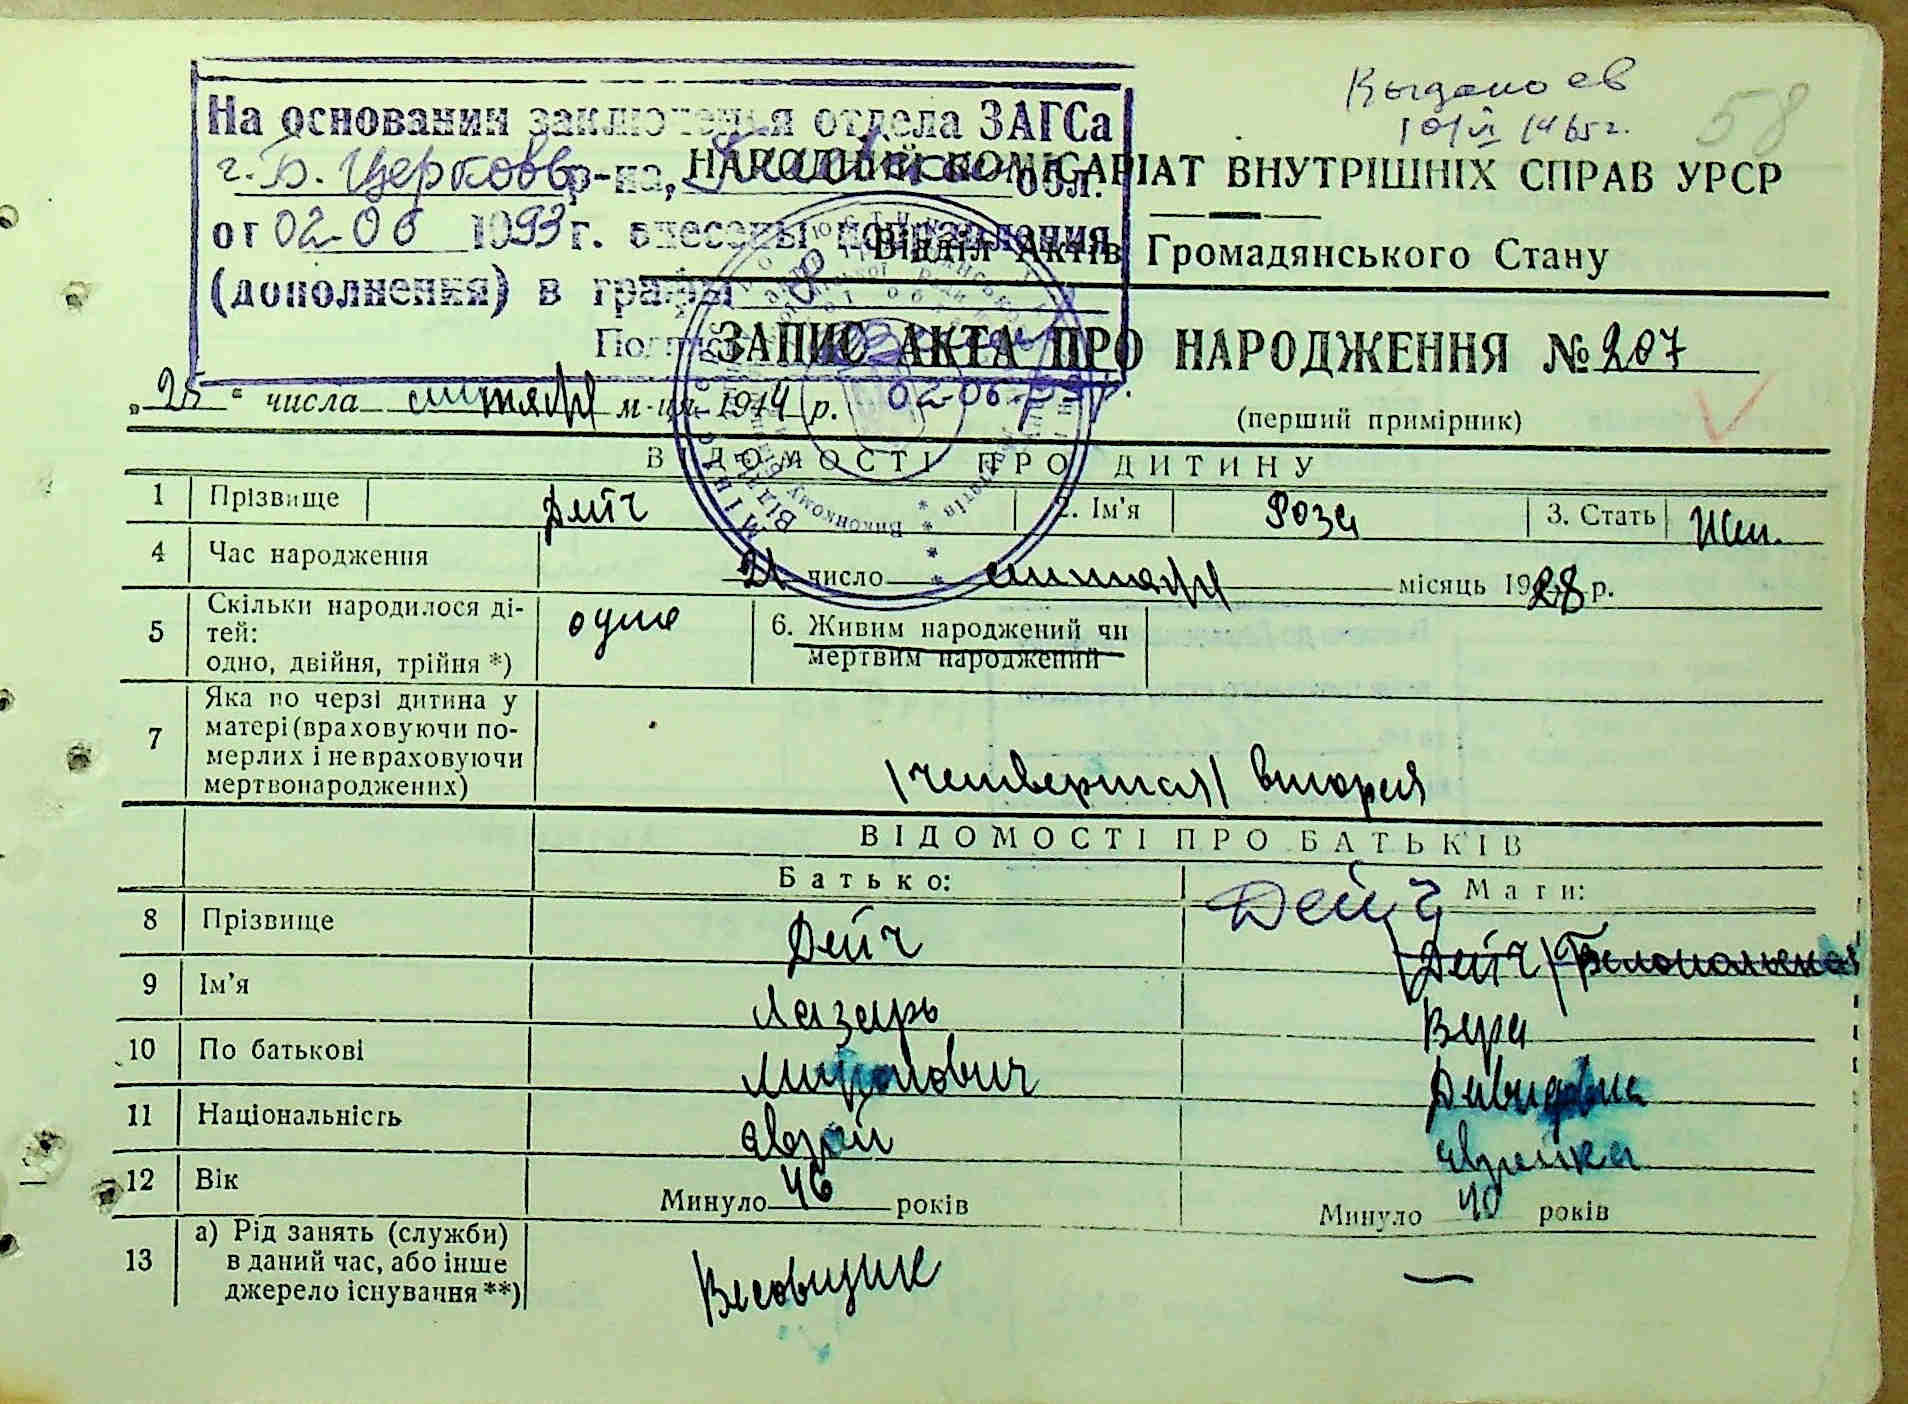 Выдано св
58
На основании заключенья отдела ЗАГСа
г. Б. Церковь р-на, обл.
от 02-06 1993 г. внесены исправления
(дополнения) в графы 8
02-06-93 г.
НАРОДНИЙ КОМІСАРІАТ ВНУТРІШНІХ СПРАВ УРСР
Відділ Актів Громадянського Стану
ЗАПИС АКТА ПРО НАРОДЖЕННЯ № 207
„25" числа сентября м-ця 1944 р.
(перший примірник)
ВІДОМОСТІ ПРО ДИТИНУ
1 Прізвище Дейч 2. Ім'я Роза 3. Стать жен.
4 Час народження 21 число сентября місяць 1928 р.
5 Скільки народилося ді-
тей:
одно, двійня, трійня *) одно
6. Живим народжений чи
мертвим народжений
7 Яка по черзі дитина у
матері (враховуючи по-
мерлих і не враховуючи
мертвонароджених) /четвертая/ вторая
ВІДОМОСТІ ПРО БАТЬКІВ
Батько: Мати:
8 Прізвище Дейч Дейч /Дейч/ Белопольская
9 Ім'я Лазарь Вера
10 По батькові Миронович Давидовна
11 Національність еврей еврейка
12 Вік Минуло 46 років Минуло 40 років
13 а) Рід занять (служби)
в даний час, або інше
джерело існування **) Весовщик —